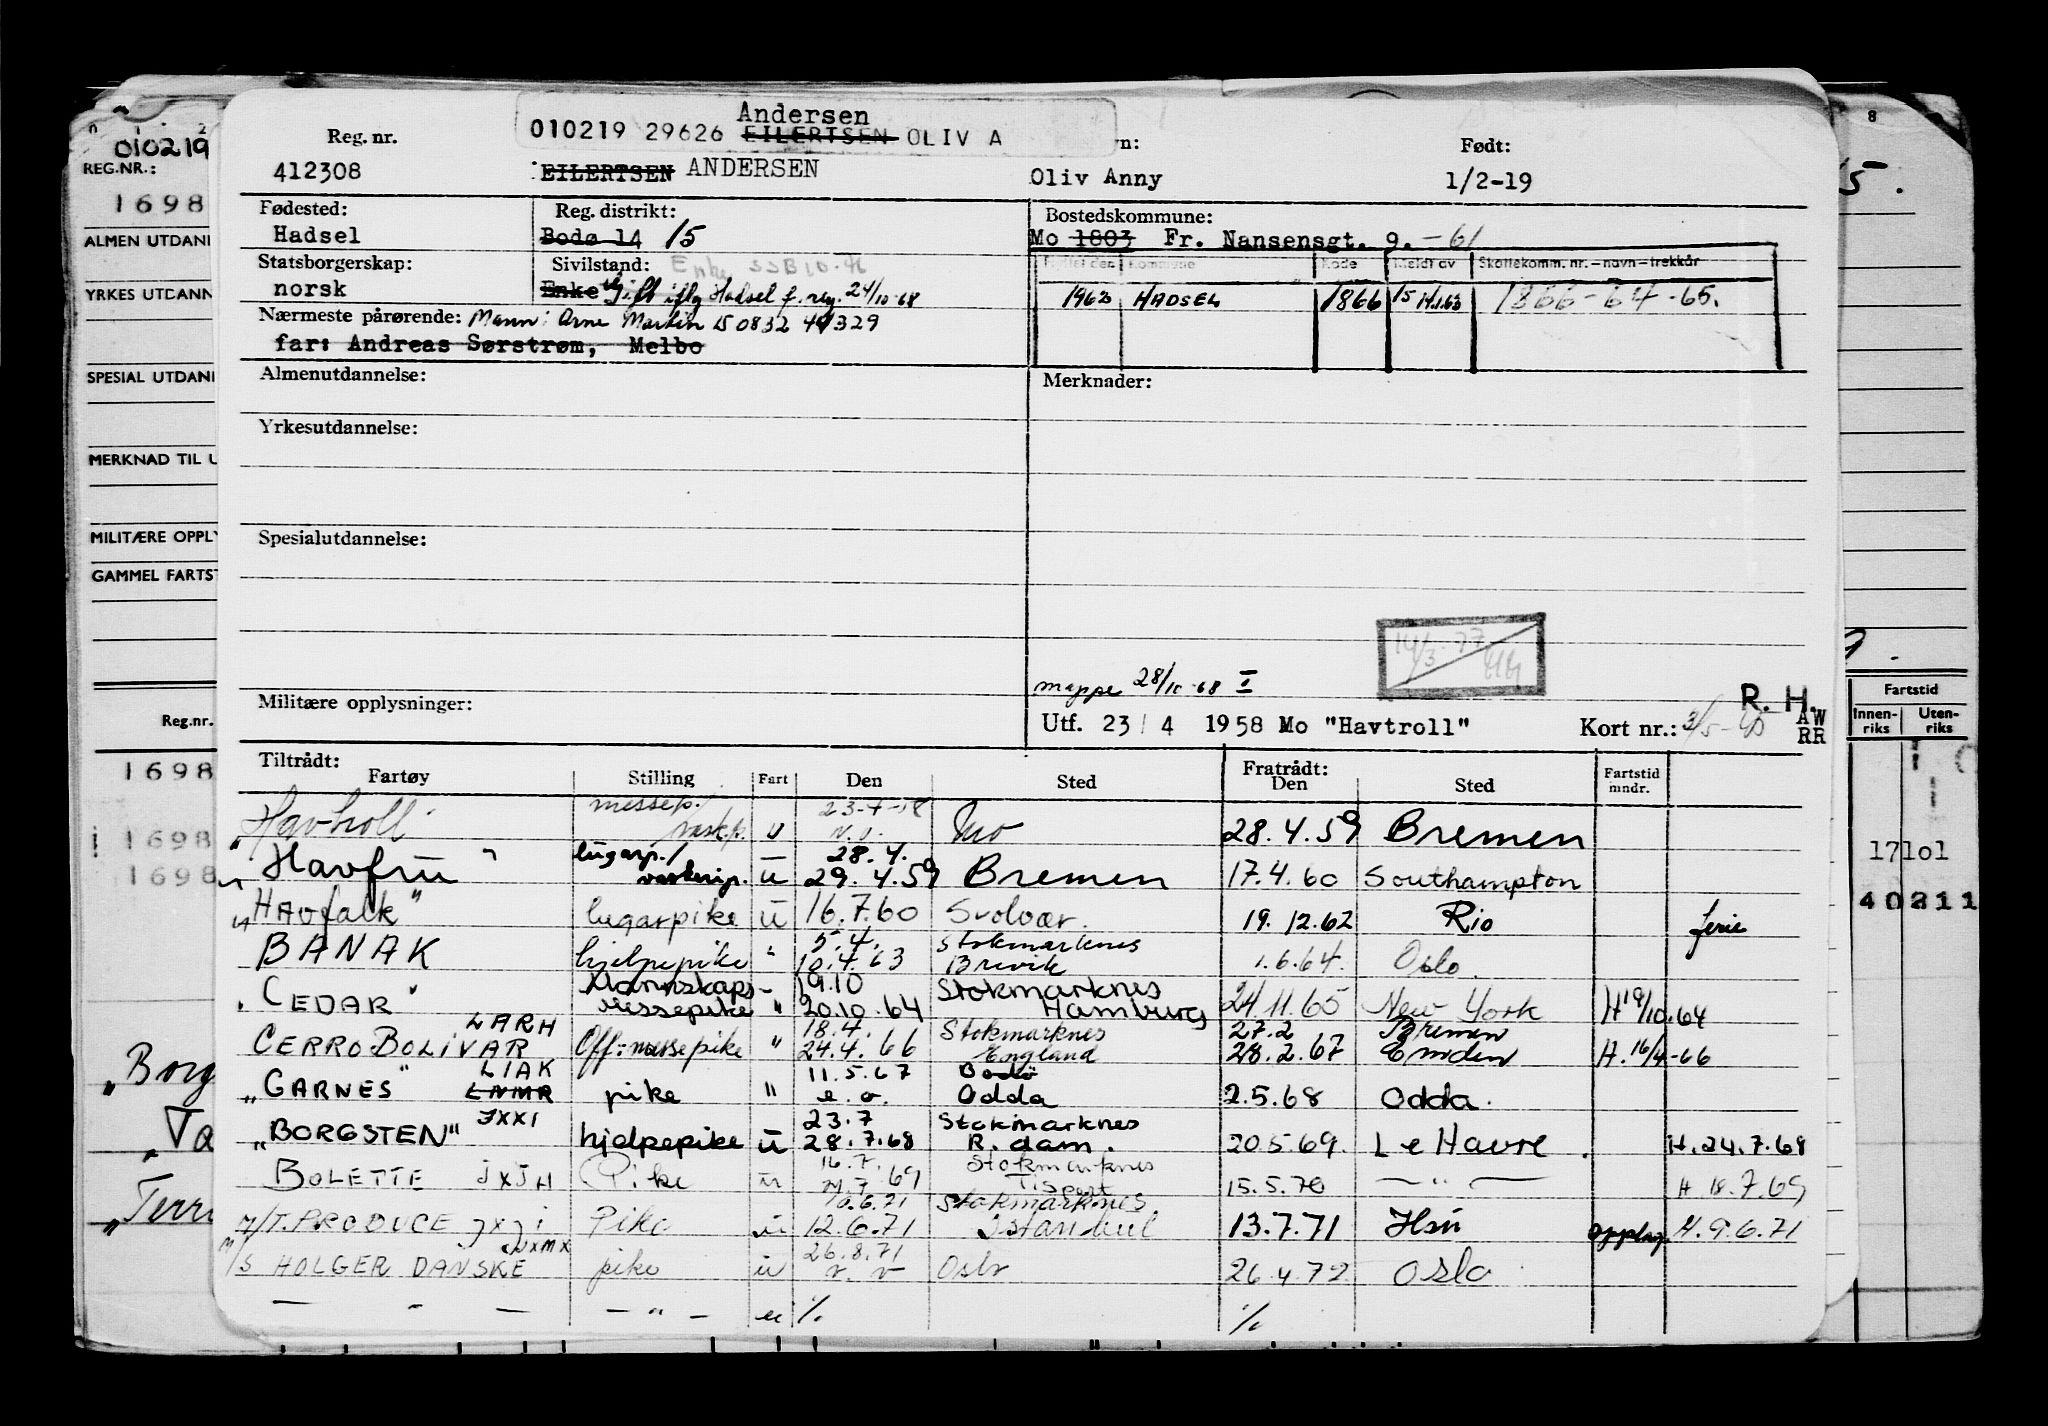 Andersen
010219 29626 EILERTSEN OLIV A
Reg. nr.
Født:
412308 EILERTSEN ANDERSEN Oliv Anny 1/2-19
Fødested: Reg. distrikt: Bostedskommune:
Hadsel Bodø 14 15 Mo 1803 Fr. Nansensgt. 9. -61
Statsborgerskap: Sivilstand: Enke SSB 10.76
Meldt den Kommune Kode Meldt av Skattekomm. nr. – navn – trekkår
norsk Enke Gift iflg Hadsel f. reg. 24/10-68
1963 HADSEL 1866 15 1866-64-65.
Nærmeste pårørende: Mann: Arne Martin 150832 44329
far: Andreas Sørstrøm, Melbo
Almenutdannelse: Merknader:
Yrkesutdannelse:
Spesialutdannelse:
14/3-77
mappe 28/10-68 I
R. H.
Militære opplysninger:
Utf. 23/4 1958 Mo "Havtroll" Kort nr.: AW
RR
Tiltrådt: Fratrådt:
Fartøy Stilling Fart Den Sted Den Sted Fartstid mndr.
messep.
"Havtroll" vaskp. u Mo 28.4.59 Bremen
lugarp./ 28.4.
"Havfru" u 29.4.59 Bremen 17.4.60 Southampton
"HAvfalk" lugarpike u 16.7.60 Svolvær 19.12.62 Rio ferie
5.4. Stokmarknes
BANAK hjelpepike " 10.4.63 Brevik 1.6.64. Oslo
Mannskaps- 19.10 Stokmarknes
"CEDAR" messepike " 20.10.64 Hamburg 24.11.65 New York H 19/10.64
LARH 18.4. Stokmarknes 27.2 Bremen
CERRO BOLIVAR Off: messepike " 24.4.66 England 28.2.67 Emden H. 16/4-66
LIAK 11.5.67 Bodø
"GARNES" LNMR pike " e.o. Odda 2.5.68 Odda.
JXXI 23.7 Stokmarknes
"BORGSTEN" hjelpepike u 28.7.68 R.dam. 20.5.69. Le Havre. H. 24.7.68
16.7. Stokmarknes
BOLETTE JXJH Pike u 69 15.5.70 — " — H 18.7.69
10.6.71 Stokmarknes
M/T. PRODUCE JXJI Pike u 12.6.71 Istanbul 13.7.71 Hsu opplag H. 9.6.71
JXMX 26.8.71
M/S HOLGER DANSKE pike u Oslo 26.4.72 Oslo
— " — — " — u % %
010219
REG.NR.:
1698
ALMEN UTDANN
YRKES UTDANN
SPESIAL UTDANN
MERKNAD TIL U
MILITÆRE OPPLY
GAMMEL FARTST
Reg.nr.
1698
1698
1698
"Borg
"Ta
"Terr
8
15.
Fartstid
Innen-riks Uten-riks
17101
40211